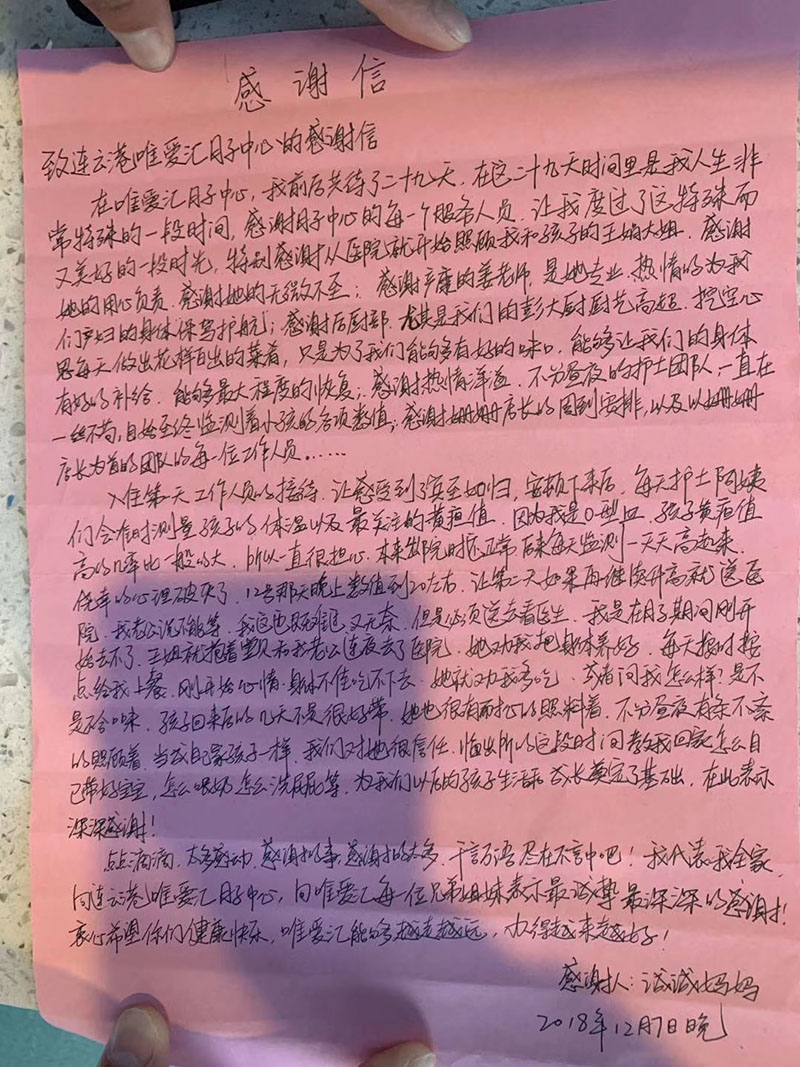 感谢信
致连云港唯爱汇月子中心的感谢信
在唯爱汇月子中心，我前后共待了二十九天，在这二十九天时间里是我人生非
常特殊的一段时间，感谢月子中心的每一个服务人员，让我度过了这特殊而
又美好的一段时光，特别感谢从医院就开始照顾我和孩子的王娟大姐，感谢
她的用心负责，感谢她的无微不至；感谢产康的姜老师，是她专业、热情的为我
们产妇的身体保驾护航；感谢后厨部，尤其是我们的彭大厨厨艺高超，挖空心
思每天做出花样百出的菜肴，只是为了我们能够有好的味口，能够让我们的身体
有好的补给，能够最大程度的恢复；感谢热情洋溢、不分昼夜的护士团队，一直在
一丝不苟，自始至终监测着小孩的各项数值；感谢姗姗店长的周到安排，以及以姗姗
店长为首的团队的每一位工作人员……
入住第一天工作人员的接待，让感受到了宾至如归，安顿下来后，每天护士阿姨
们会准时测量孩子的体温以及最关注的黄疸值，因为我是O型血，孩子黄疸值
高的几率比一般的大，所以一直很担心，本来出院时还正常后来每天监测一天天高起来，
侥幸的心理破灭了，12号那天晚上数值到20左右，让第二天如果再继续升高就送医
院，我老公说不能等，我这也很难过又无奈，但是必须送去看医生，我是在月子期间刚开
始去不了，王姐就抱着宝贝和我老公连夜去了医院，她劝我把身体养好，每天按时按
点给我上餐，刚开始心情、身体不佳吃不下去，她就劝我多吃，或者问我怎么样？是不
是不合口味，孩子回来后的几天不是很好带，她也很有耐心的照料着，不分昼夜有条不紊
的照顾着，当成自家孩子一样，我们对她很信任，临出所的这段时间教我回家怎么自
己带好宝宝，怎么喂奶怎么洗屁屁等，为我们以后的孩子生活和成长奠定了基础，在此表示
深深感谢！
点点滴滴，太多感动，感谢的事，感谢的太多，千言万语尽在不言中吧！我代表我全家，
向连云港唯爱汇月子中心，向唯爱汇每一位兄弟姐妹表示最诚挚最深深的感谢！
衷心希望你们健康快乐，唯爱汇能够越走越远，办得越来越好！
感谢人：诚诚妈妈
2018年12月7日晚